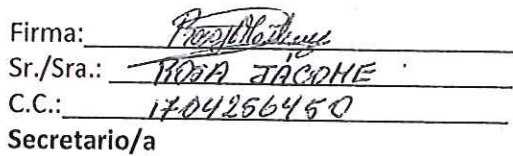 Firma:
Sr./Sra.: ROSA JÁCOME
C.C.: 1704256450
Secretario/a